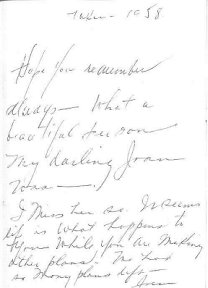 Taken - 1958.
Hope you remember
always - what a
beautiful person
my darling Joan
was - .
I miss her so. It seems
life is what happens to
you while you are making
other plans. We had
so many plans left -